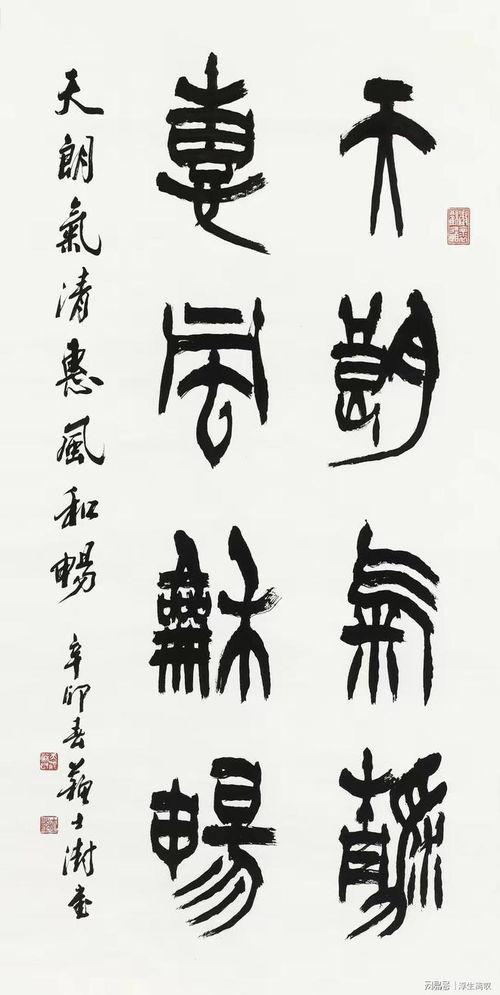 天朗气清
惠风龢畅
天朗氣清惠風和暢
辛卯春蘇士澍書
网易号 | 浮生阅叹